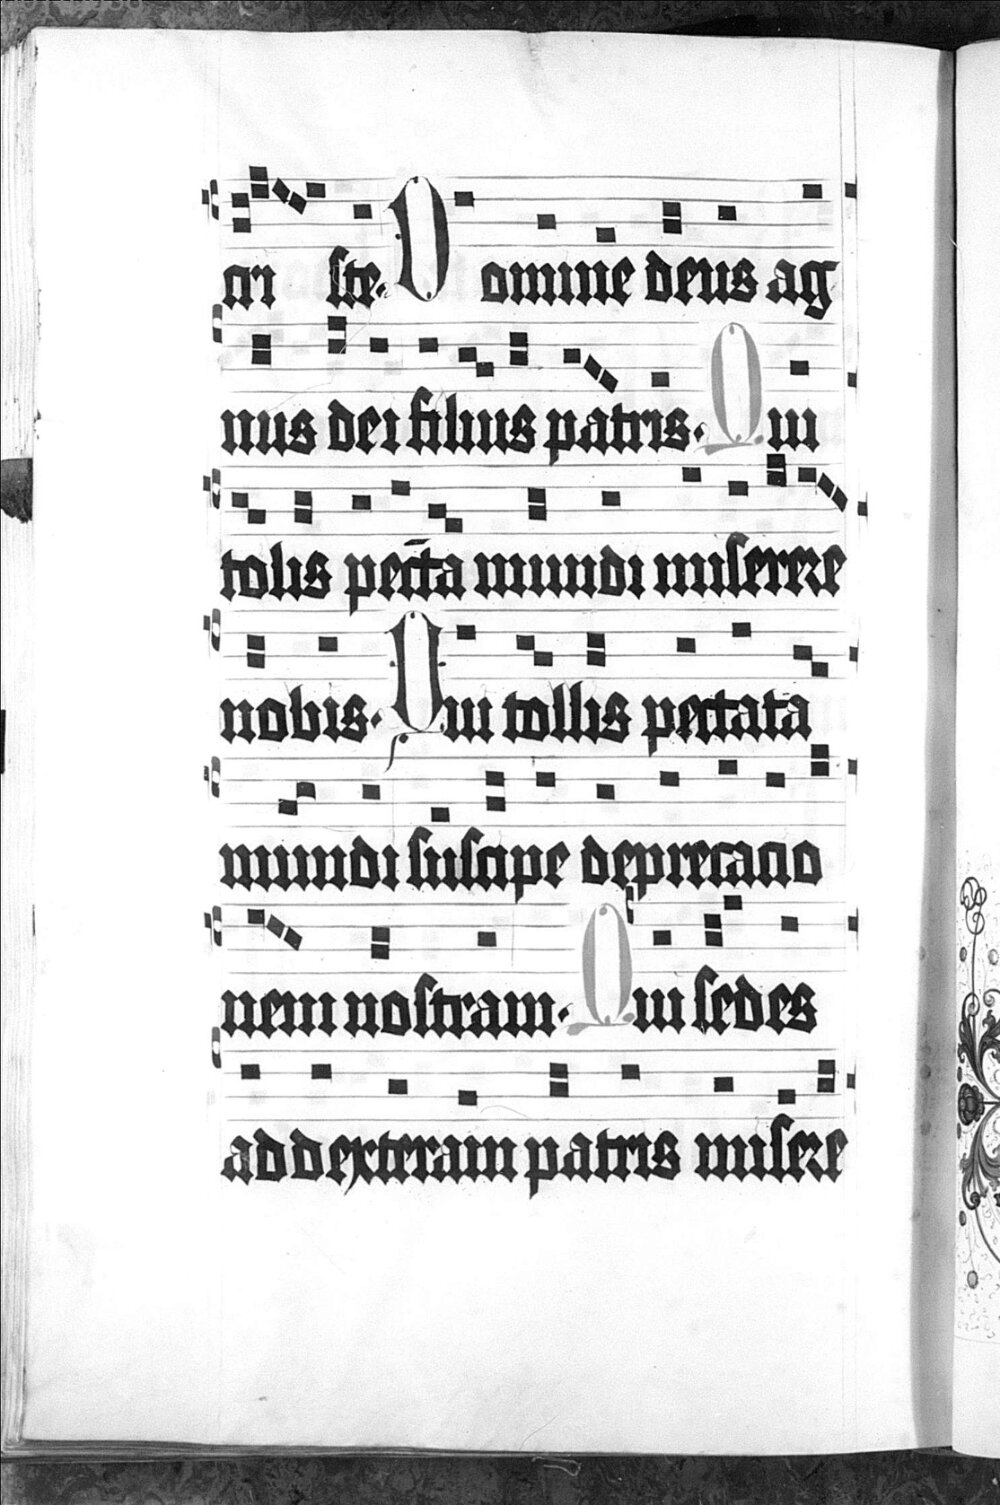 cri ste. Domine deus ag
nus dei filius patris. Qui
tolis pecc̄ta mundi miserere
nobis. Qui tollis peccata
mundi suscipe deprecatio
nem nostram. Qui sedes
ad dexteram patris misere